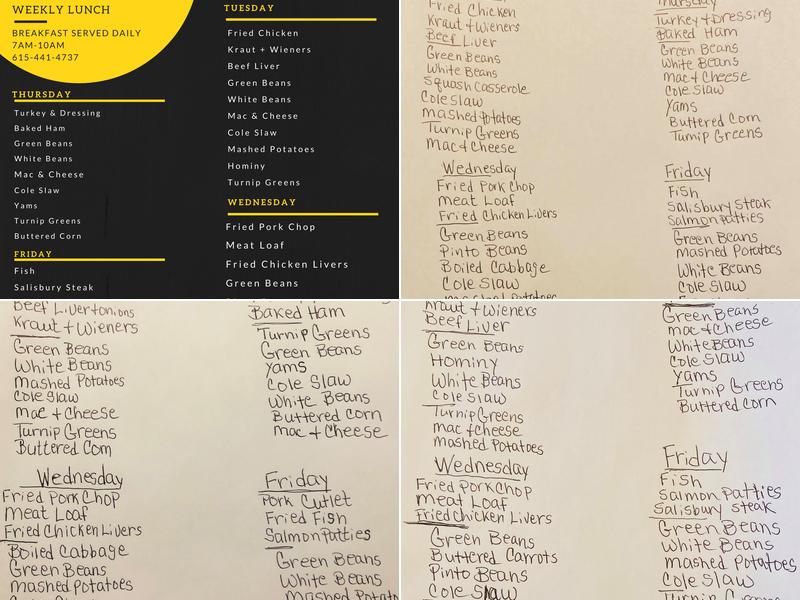 WEEKLY LUNCH
BREAKFAST SERVED DAILY
7AM-10AM
615-441-4737
THURSDAY
Turkey & Dressing
Baked Ham
Green Beans
White Beans
Mac & Cheese
Cole Slaw
Yams
Turnip Greens
Buttered Corn
FRIDAY
Fish
Salisbury Steak
TUESDAY
Fried Chicken
Kraut + Wieners
Beef Liver
Green Beans
White Beans
Mac & Cheese
Cole Slaw
Mashed Potatoes
Hominy
Turnip Greens
WEDNESDAY
Fried Pork Chop
Meat Loaf
Fried Chicken Livers
Green Beans
Fried Chicken
Kraut + Wieners
Beef Liver
Green Beans
White Beans
Squash Casserole
Cole Slaw
Mashed Potatoes
Turnip Greens
Mac + Cheese
Wednesday
Fried Pork Chop
Meat Loaf
Fried Chicken Livers
Green Beans
Pinto Beans
Boiled Cabbage
Cole Slaw
Mashed Potatoes
Thursday
Turkey + Dressing
Baked Ham
Green Beans
White Beans
Mac + Cheese
Cole Slaw
Yams
Buttered Corn
Turnip Greens
Friday
Fish
Salisbury Steak
Salmon Patties
Green Beans
Mashed Potatoes
White Beans
Cole Slaw
Beef Liver + onions
Kraut + Wieners
Green Beans
White Beans
Mashed Potatoes
Cole Slaw
Mac + Cheese
Turnip Greens
Buttered Corn
Wednesday
Fried Pork Chop
Meat Loaf
Fried Chicken Livers
Boiled Cabbage
Green Beans
Mashed Potatoes
Baked Ham
Turnip Greens
Green Beans
Yams
Cole Slaw
White Beans
Buttered Corn
Mac + Cheese
Friday
Pork Cutlet
Fried Fish
Salmon Patties
Green Beans
White Beans
Mashed Potato
Kraut + Wieners
Beef Liver
Green Beans
Hominy
White Beans
Cole Slaw
Turnip Greens
Mac + Cheese
Mashed Potatoes
Wednesday
Fried Pork Chop
Meat Loaf
Fried Chicken Livers
Green Beans
Buttered Carrots
Pinto Beans
Cole Slaw
Green Beans
Mac + Cheese
White Beans
Cole Slaw
Yams
Turnip Greens
Buttered Corn
Friday
Fish
Salmon Patties
Salisbury Steak
Green Beans
White Beans
Mashed Potatoes
Cole Slaw
Turnip